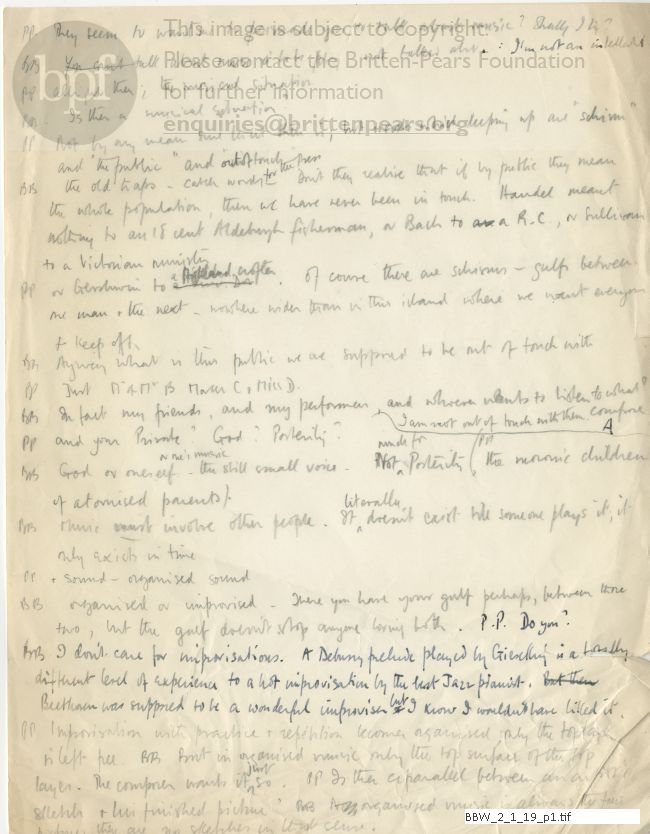 PP They seem to want us to talk about music? Shall I try?
This image is subject to copyright.
BB You can't talk about music : I'm not an intellect
Please contact the Britten-Pears Foundation
PP the musical situation
bpf
for further information
BB. Is there a musical situation.
enquiries@brittenpears.org
PP Not by any means keeping up are "schism"
and "the public" and out of touch
BB the old traps – catch words for the press But they realise that if by public they mean
the whole population, then we have never been in touch. Handel meant
nothing to an 18 cent Aldeburgh fisherman, or Bach to a R.C., or Sullivan
to a Victorian minister
PP or Gershwin to a crofter. Of course there are schisms – gulfs between
one man + the next – nowhere wider than in this island where we want everyone
to keep off.
BB Anyway what is this public we are supposed to be out of touch with
PP Just Mr A Mr B Master C, + Miss D.
BB In fact my friends, and my performers, and whoever wants to listen to what I
I am not out of touch with them compose
A
PP and your Private? God? Posterity?
or one's music made for PP
BB God or oneself – the still small voice. Not Posterity (the moronic children
of atomised parents).
literally
BB Music must involve other people. It doesn't exist till someone plays it, it
only exists in time
PP + sound – organised sound
BB organised or improvised – There you have your gulf perhaps, between those
two, but the gulf doesn't stop anyone loving both. P.P. Do you?
BB I don't care for improvisations. A Debussy prelude played by Gieseking is a totally
different level of experience to a hot improvisation by the best Jazz pianist. But then
Beethoven was supposed to be a wonderful improviser but I know I wouldn't have liked it.
PP Improvisation with practice + repetition becomes organised only the top layer
is left free. BB But in organised music only the top surface of the top
layer. The composer wants it just so. PP Is there a parallel between an artist's
sketch + his finished picture? BB organised music is always the
picture there are no sketches in that sense.
BBW_2_1_19_p1.tif